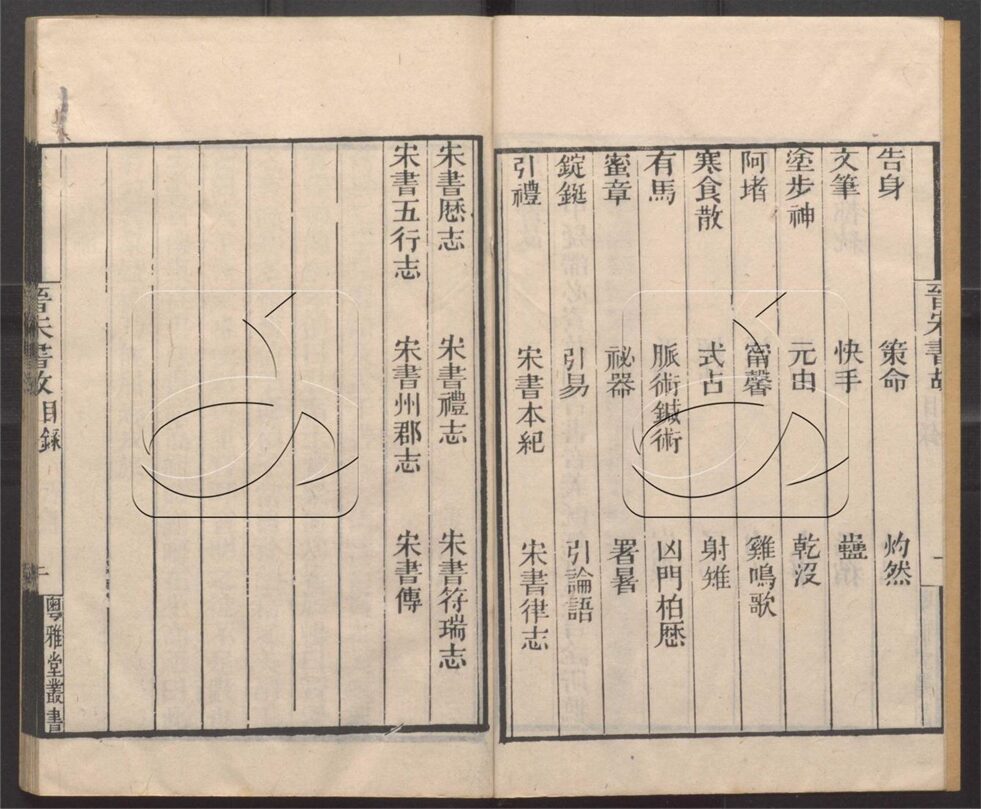 告身 策命 灼然
文筆 快手 蠱
塗步神 元由 乾沒
阿堵 甯馨 雞鳴歌
寒食散 式占 射雉
有馬 脈術鍼術 凶門柏歷
蜜章 祕器 署暑
錠鋌 引易 引論語
引禮 宋書本紀 宋書律志
宋書歷志 宋書禮志 宋書符瑞志
宋書五行志 宋書州郡志 宋書傳
晉宋書故 目錄 一 粵雅堂叢書